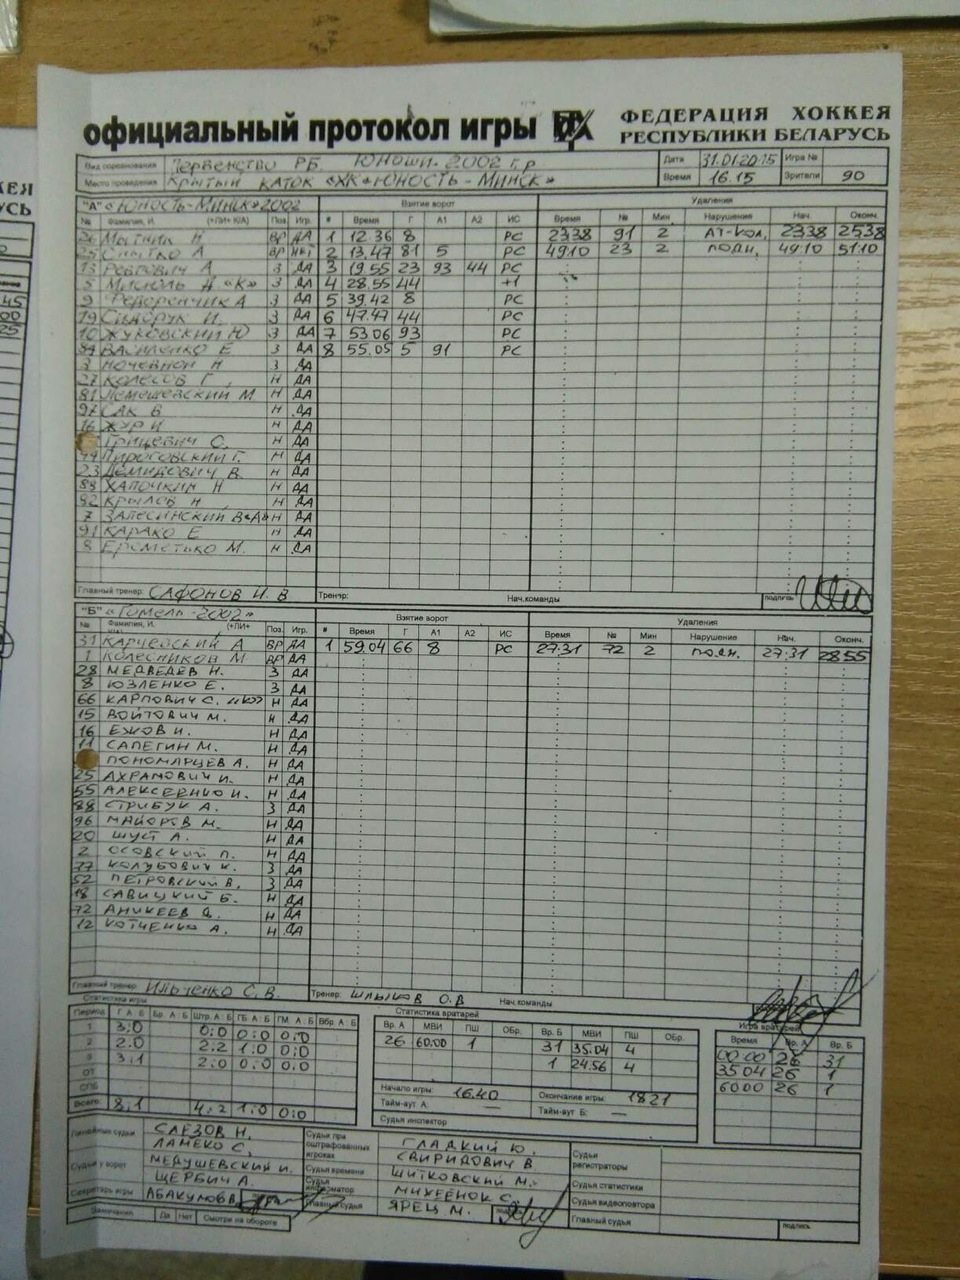 официальный протокол игры
ФЕДЕРАЦИЯ ХОККЕЯ
РЕСПУБЛИКИ БЕЛАРУСЬ
Вид соревнования Первенство РБ Юноши. 2002 г.р Дата 31.01.2015 Игра №
Место проведения Крытый каток «ХК «Юность-Минск» Время 16.15 Зрители 90
"А" «Юность-Минск» 2002 Взятие ворот Удаления
№ Фамилия, И. Поз Игр. # Время Г А1 А2 ИС Время № Мин Нарушения Нач. Оконч.
26 Мытник Н ВР ДА 1 12.36 8 РС 23.38 91 2 АТ-КОЛ. 23.38 25.38
25 Снытко А ВР 2 13.47 81 5 РС 49.10 23 2 подн. 49.10 51.10
13 Ревтович А З ДА 3 19.55 23 93 44 РС
5 З ДА 4 28.55 44 +1
9 Федоренчик А З ДА 5 39.42 8 РС
19 Сидорук И. З ДА 6 47.47 44 РС
10 Жуковский Ю З ДА 7 53.06 93 РС
Василенко Е З ДА 8 55.05 5 91 РС
3 Ночевной Н З ДА
27 Колесов Г. Н ДА
81 Лемешевский М. Н ДА
97 Сак В Н ДА
16 Жур И Н ДА
Грицевич С. Н ДА
44 Пироговский Г. Н ДА
23 Демидович В. Н ДА
88 Хапочкин Н Н ДА
82 Крылов Н Н ДА
7 Залесинский В «А» Н ДА
91 Карако Е Н ДА
8 Ерометько М. Н ДА
Главный тренер: Сафонов И. В Тренер: Нач.команды подпись
"Б" «Гомель-2002» Взятие ворот Удаления
№ Фамилия, И. Поз Игр. # Время Г А1 А2 ИС Время № Мин Нарушение Нач. Оконч.
31 Карчевский А ВР ДА 1 59.04 66 8 РС 27.31 72 2 подн. 27.31 28.55
1 Колесников М ВР ДА
28 Медведев Н. З ДА
8 Юзленко Е. З ДА
66 Карпович С. «К» Н ДА
15 Войтович М. Н ДА
16 Ежов И. Н ДА
11 Сапегин М. Н ДА
Пономарцев А. Н ДА
25 Ахрамович И. Н ДА
55 Алексеенко И. Н ДА
88 Стрибук А. З ДА
96 Майоров М. Н ДА
20 Шуст А. Н ДА
2 Осовский П. Н ДА
77 Колубович К. З ДА
52 Петровский В. З ДА
18 Савицкий Б. Н ДА
72 Аникеев Н ДА
12 Котченко А. Н ДА
Главный тренер: Ильченко С. В. Тренер: Шлыков О.В Нач.команды
Статистика игры Статистика вратарей Игра вратарей
Период Г А:Б Бр. А:Б Штр. А:Б ГБ А:Б ГМ А:Б Вбр. А:Б Вр. А МВИ ПШ ОБр. Вр. Б МВИ ПШ ОБр. Время Вр. А Вр. Б
1 3:0 0:0 0:0 0:0 26 60.00 1 31 35.04 4 00.00 26 31
2 2:0 2:2 1:0 0:0 1 24.56 4 35.04 26 1
3 3:1 2:0 0:0 0:0 60.00 26 1
ОТ
СПБ
Всего: 8:1 4:2 1:0 0:0
Начало игры: 16.40 Окончание игры: 18.21
Тайм-аут А: — Тайм-аут Б: —
Судья инспектор
Линейные судьи Слезов Н. Судьи при оштрафованных игроках Гладкий Ю. Судьи регистраторы
Ламеко С. Свиридович В
Судьи у ворот Медушевский И. Судья времени Шитковский М. Судья статистики
Щербич А. Судья информатор Михеенок С. Судья видеоповтора
Секретарь игры Абакумова Главный судья Ярец М. Главный судья подпись
Замечания Да Нет Смотри на обороте